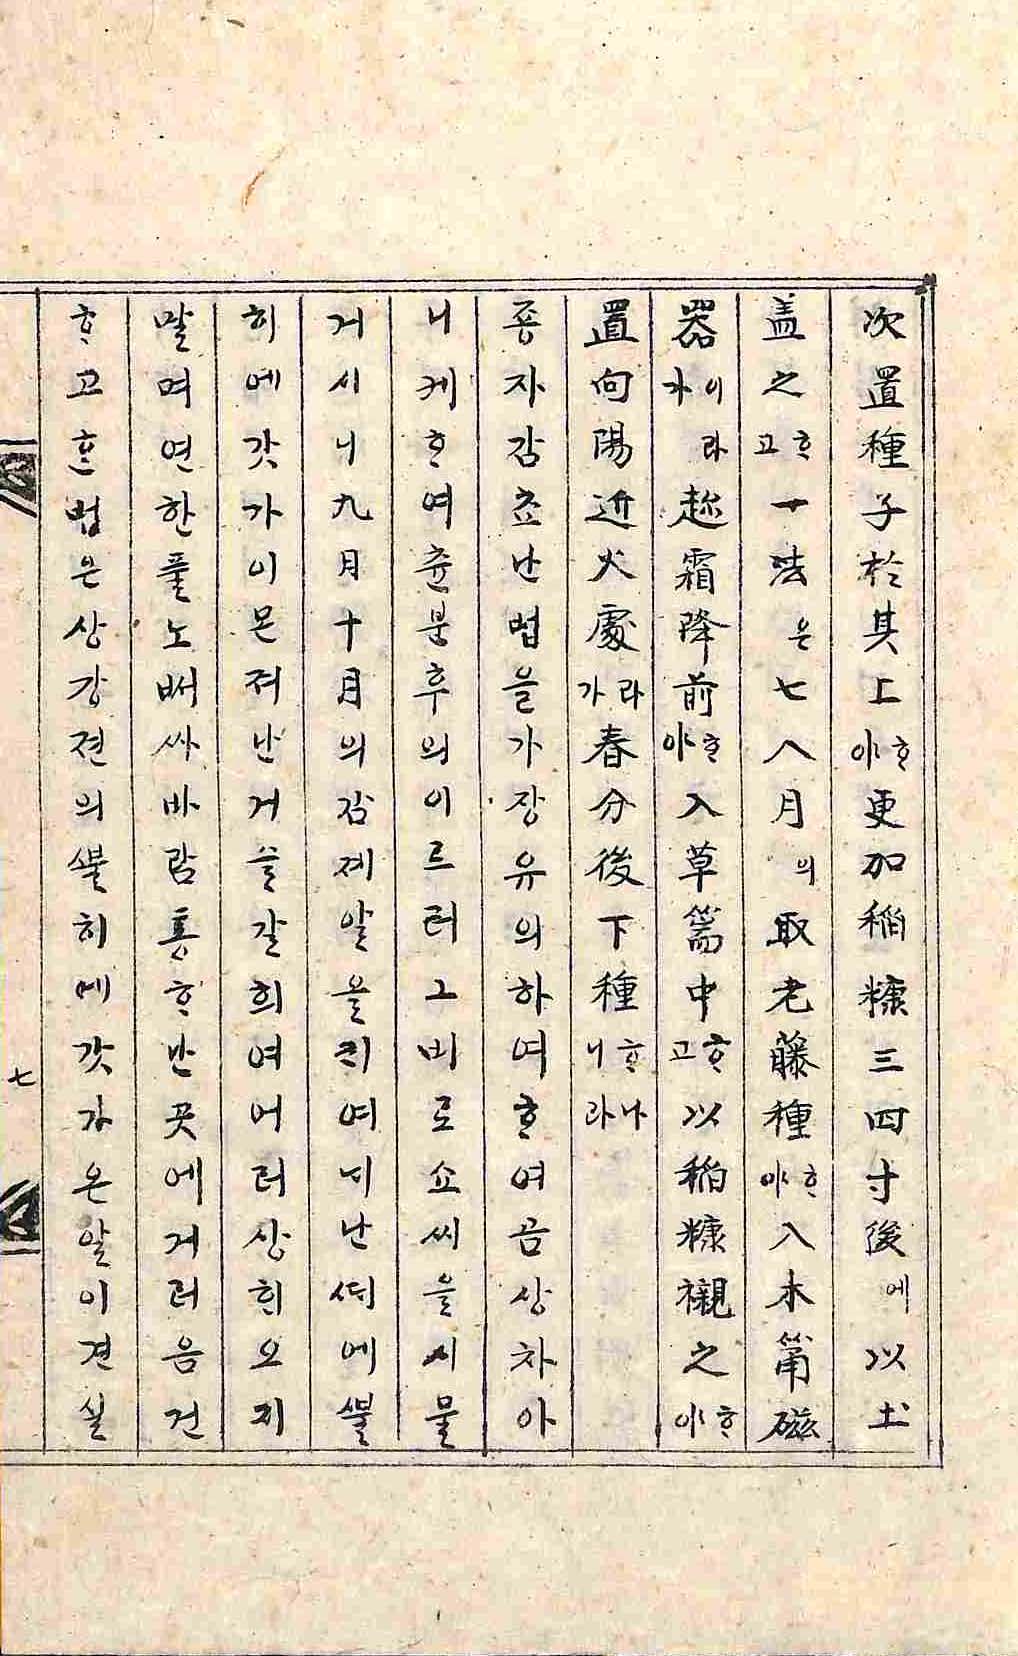 次置種子於其上ᄒᆞ야更加稻糠三四寸後에以土
盖之ᄒᆞ고一法은七八月의取老藤種ᄒᆞ야入木筩磁
器이라가趂霜降前ᄒᆞ야入草篅中ᄒᆞ고以稻糠襯之ᄒᆞ야
置向陽近火處라가春分後下種ᄒᆞ나니라
죵자감쵸난법을가장유의하여ᄒᆞ여곰상차아
니케ᄒᆞ여츈분후의이르러그비로쇼씨을시물
거시니九月十月의감졔알을ᄏᆡ여ᄂᆡ난ᄯᆡ에ᄲᅮᆯ
히에갓가이몬져난거슬갈희여어러상히오지
말며연한풀노ᄡᅥ싸바람통ᄒᆞ난곳에거러음건
ᄒᆞ고ᄒᆞᆫ법은상강젼의ᄲᅮᆯ히에갓가온알이견실
七